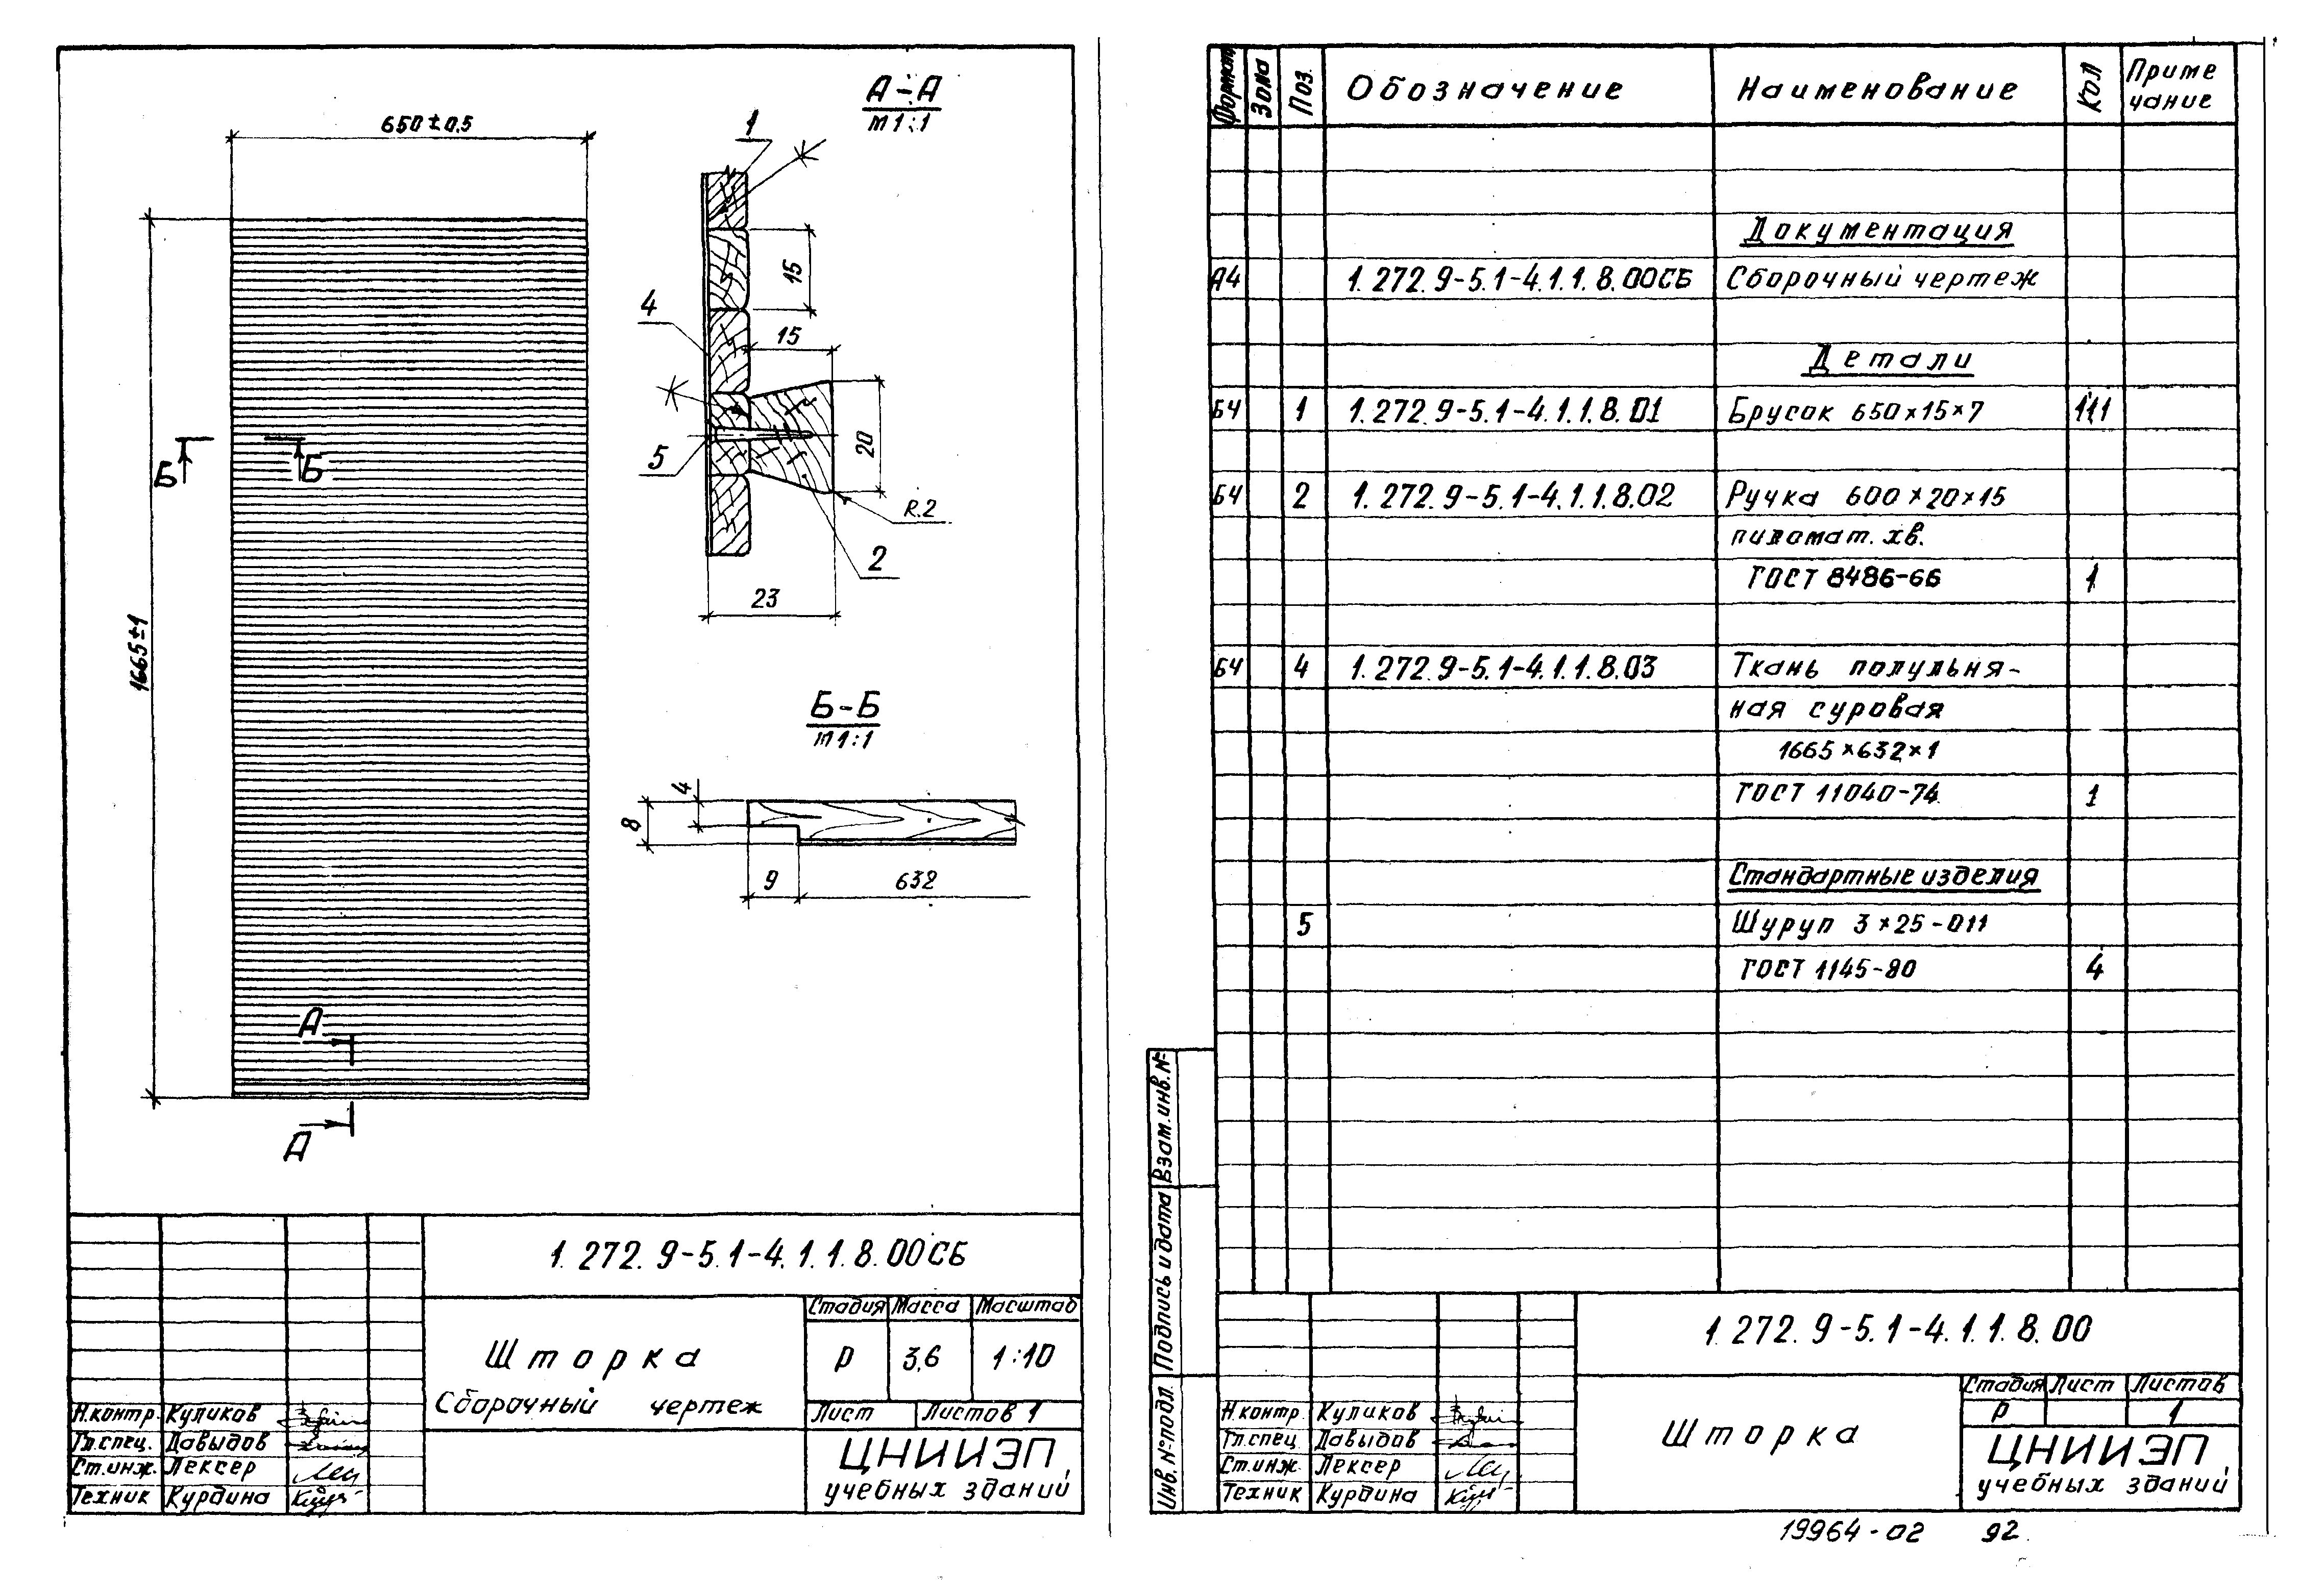 650±0,5
1665±1
Б
Б
А
А
А-А
м1:1
1
15
4
15
20
5
R.2
2
23
Б-Б
м1:1
4
8
9
632
1.272.9-5.1-4.1.1.8.00СБ
Шторка
Сборочный чертеж
Стадия Масса Масштаб
Р 3,6 1:10
Лист Листов 1
Н.контр. Куликов
Гл.спец. Давыдов
Ст.инж. Лексер
Техник Курдина
ЦНИИЭП
учебных зданий
Формат Зона Поз. Обозначение Наименование Кол Примечание
Документация
А4 1.272.9-5.1-4.1.1.8.00СБ Сборочный чертеж
Детали
БЧ 1 1.272.9-5.1-4.1.1.8.01 Брусок 650×15×7 111
БЧ 2 1.272.9-5.1-4.1.1.8.02 Ручка 600×20×15
пиломат. хв.
ГОСТ 8486-66 1
БЧ 4 1.272.9-5.1-4.1.1.8.03 Ткань полульня-
ная суровая
1665×632×1
ГОСТ 11040-74 1
Стандартные изделия
5 Шуруп 3×25-011
ГОСТ 1145-80 4
Взам. инв.№
Подпись и дата
Инв.№подл.
1.272.9-5.1-4.1.1.8.00
Шторка
Стадия Лист Листов
Р 1
Н.контр. Куликов
Гл.спец. Давыдов
Ст.инж. Лексер
Техник Курдина
ЦНИИЭП
учебных зданий
19964-02 92